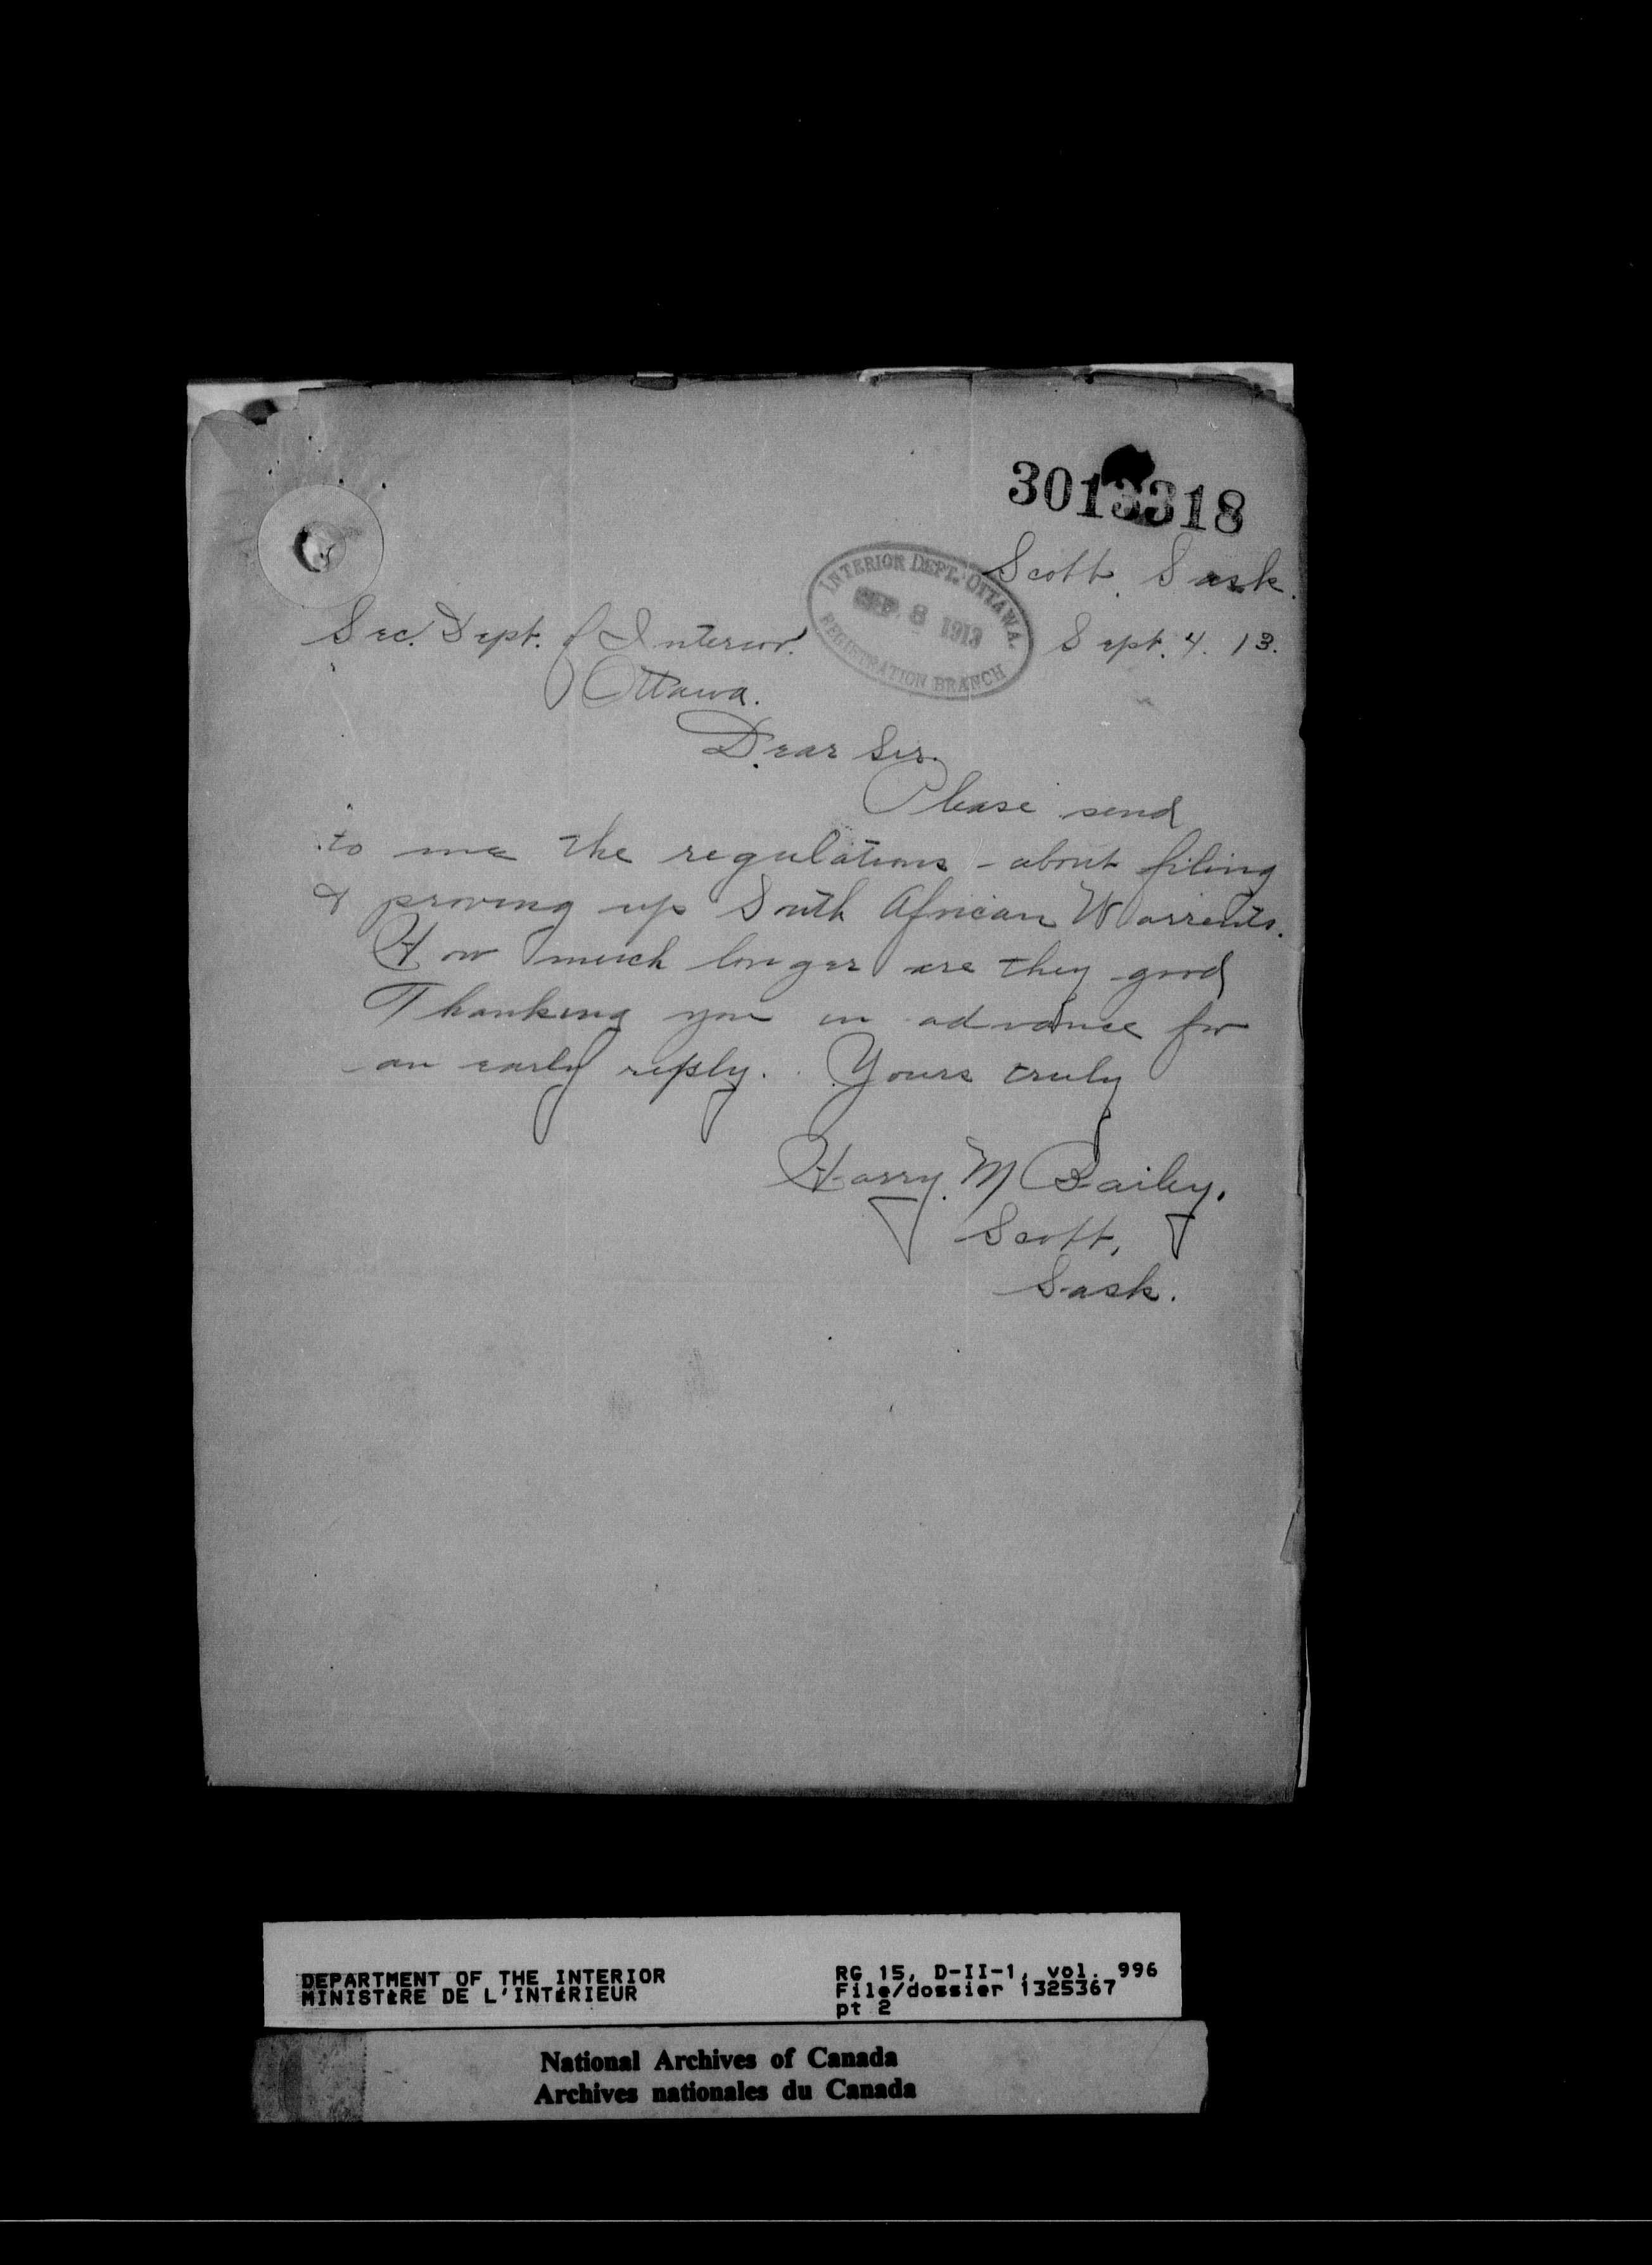 3013318
Scott, Sask.
INTERIOR DEPT. OTTAWA.
SEP. 8 1913
REGISTRATION BRANCH
Sept. 4. 13.
Sec. Dept. of Interior.
Ottawa.
Dear Sir.
Please send
to me the regulations - about filing
& proving up South African Warrents.
How much longer are they good
Thanking you in advance for
an early reply. Yours truly
Harry M Bailey.
Scott,
Sask.
DEPARTMENT OF THE INTERIOR
MINISTÈRE DE L'INTÉRIEUR
RG 15, D-II-1, vol. 996
File/dossier 1325367
pt 2
National Archives of Canada
Archives nationales du Canada